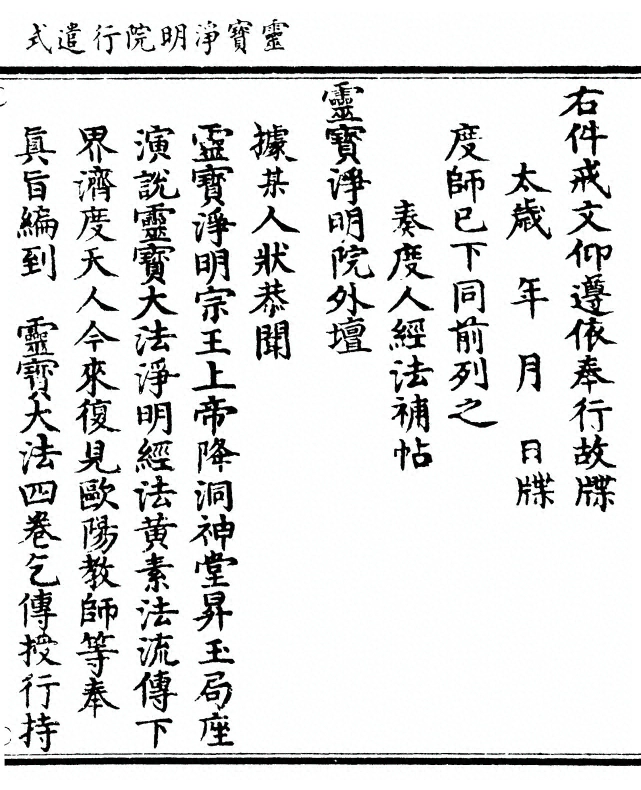 靈寶淨明院行遣式
右件戒文仰遵依奉行故牒
太歲　年　月　日牒
度師已下同前列之
奏度人經法補帖
靈寶淨明院外壇
據某人狀恭聞
靈寶淨明宗王上帝降洞神堂昇玉局座
演說靈寶大法淨明經法黃素法流傳下
界濟度天人今來復見歐陽教師等奉
眞旨編到　靈寶大法四卷乞傳授行持